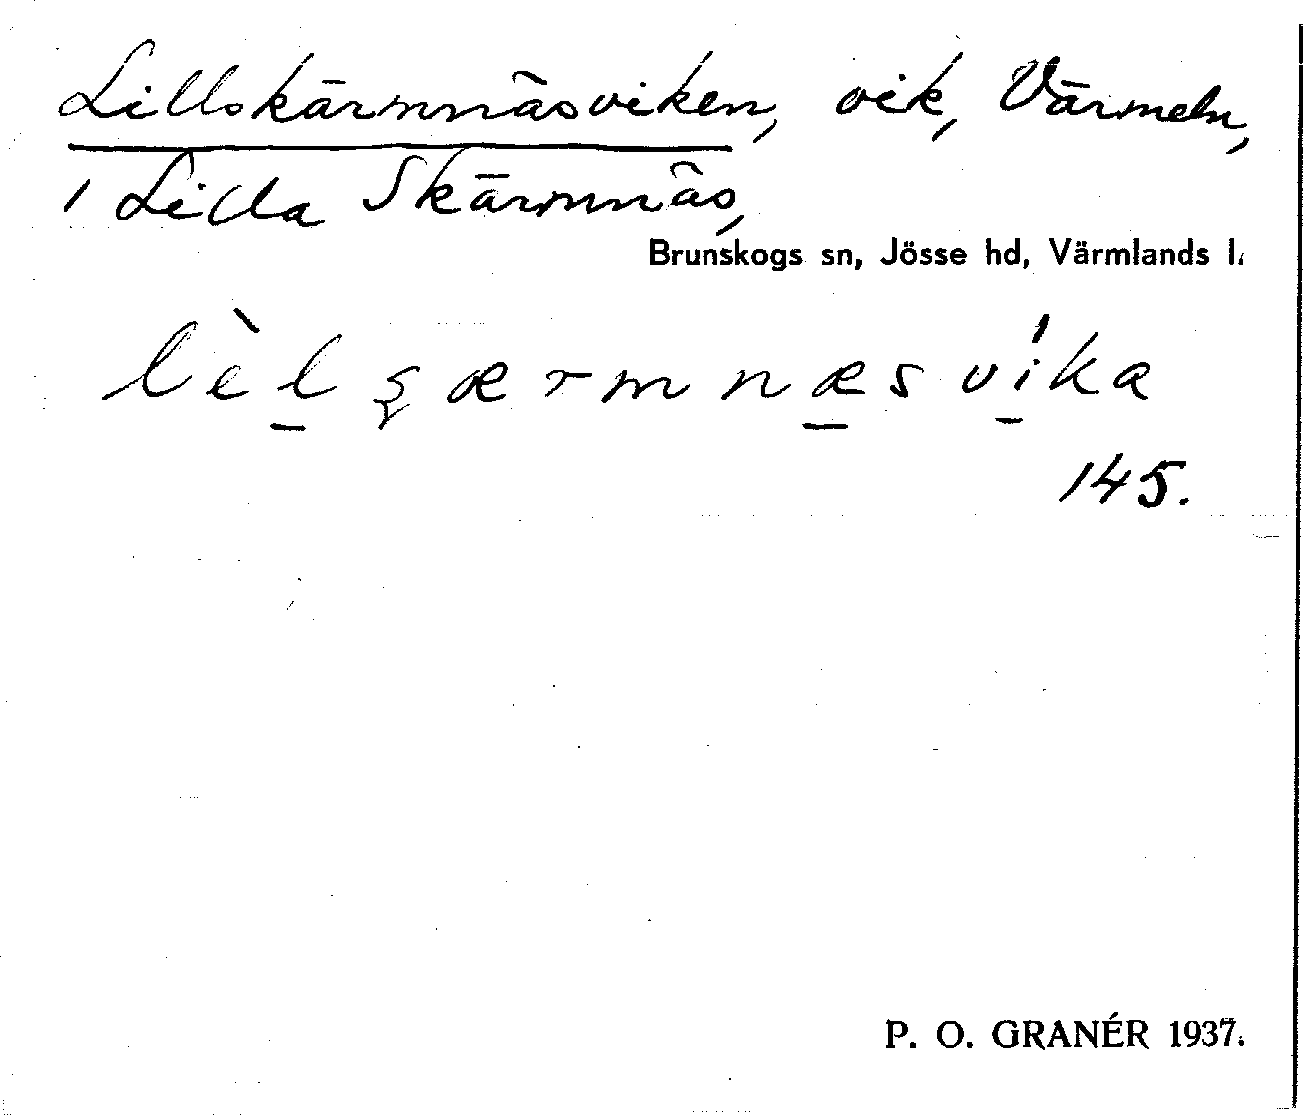 Lillskärmnäsviken, vik, Värmeln,
1 Lilla Skärmnäs,
Brunskogs sn, Jösse hd, Värmlands l.
lèlʂærmnæsvíka
145.
P. O. GRANÉR 1937.